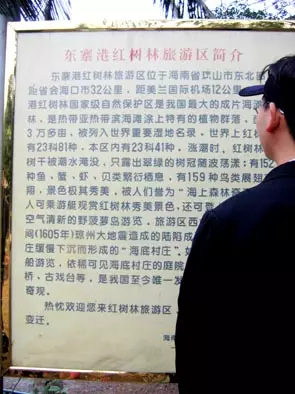 东寨港红树林旅游区简介
东寨港红树林旅游区位于海南省琼山市东北部
距省会海口市32公里，距美兰国际机场12公里
港红树林国家级自然保护区是我国最大的成片海
林，是热带亚热带滨海滩涂上特有的植物群落，
3万多亩，被列入世界重要湿地名录，世界上红
有23科81种，本区内有23科41种，涨潮时，红树林
树干被潮水淹没，只露出翠绿的树冠随波荡漾；有152
种鱼，蟹，虾、贝类繁衍栖息，有159种鸟类展翅
翔，景色极其秀美，被人们誉为"海上森林
人可乘游艇观赏红树林秀美景色，还可登
空气清新的野菠萝岛游览，旅游区西
间(1605年)琼州大地震造成的陆陷成
庄缓慢下沉而形成的"海底村庄"。
船游览，依稀可见海底村庄的庭院
桥、古戏台等，是我国至今唯一发
奇观。
热忱欢迎您来红树林旅游区，
变迁。
海南